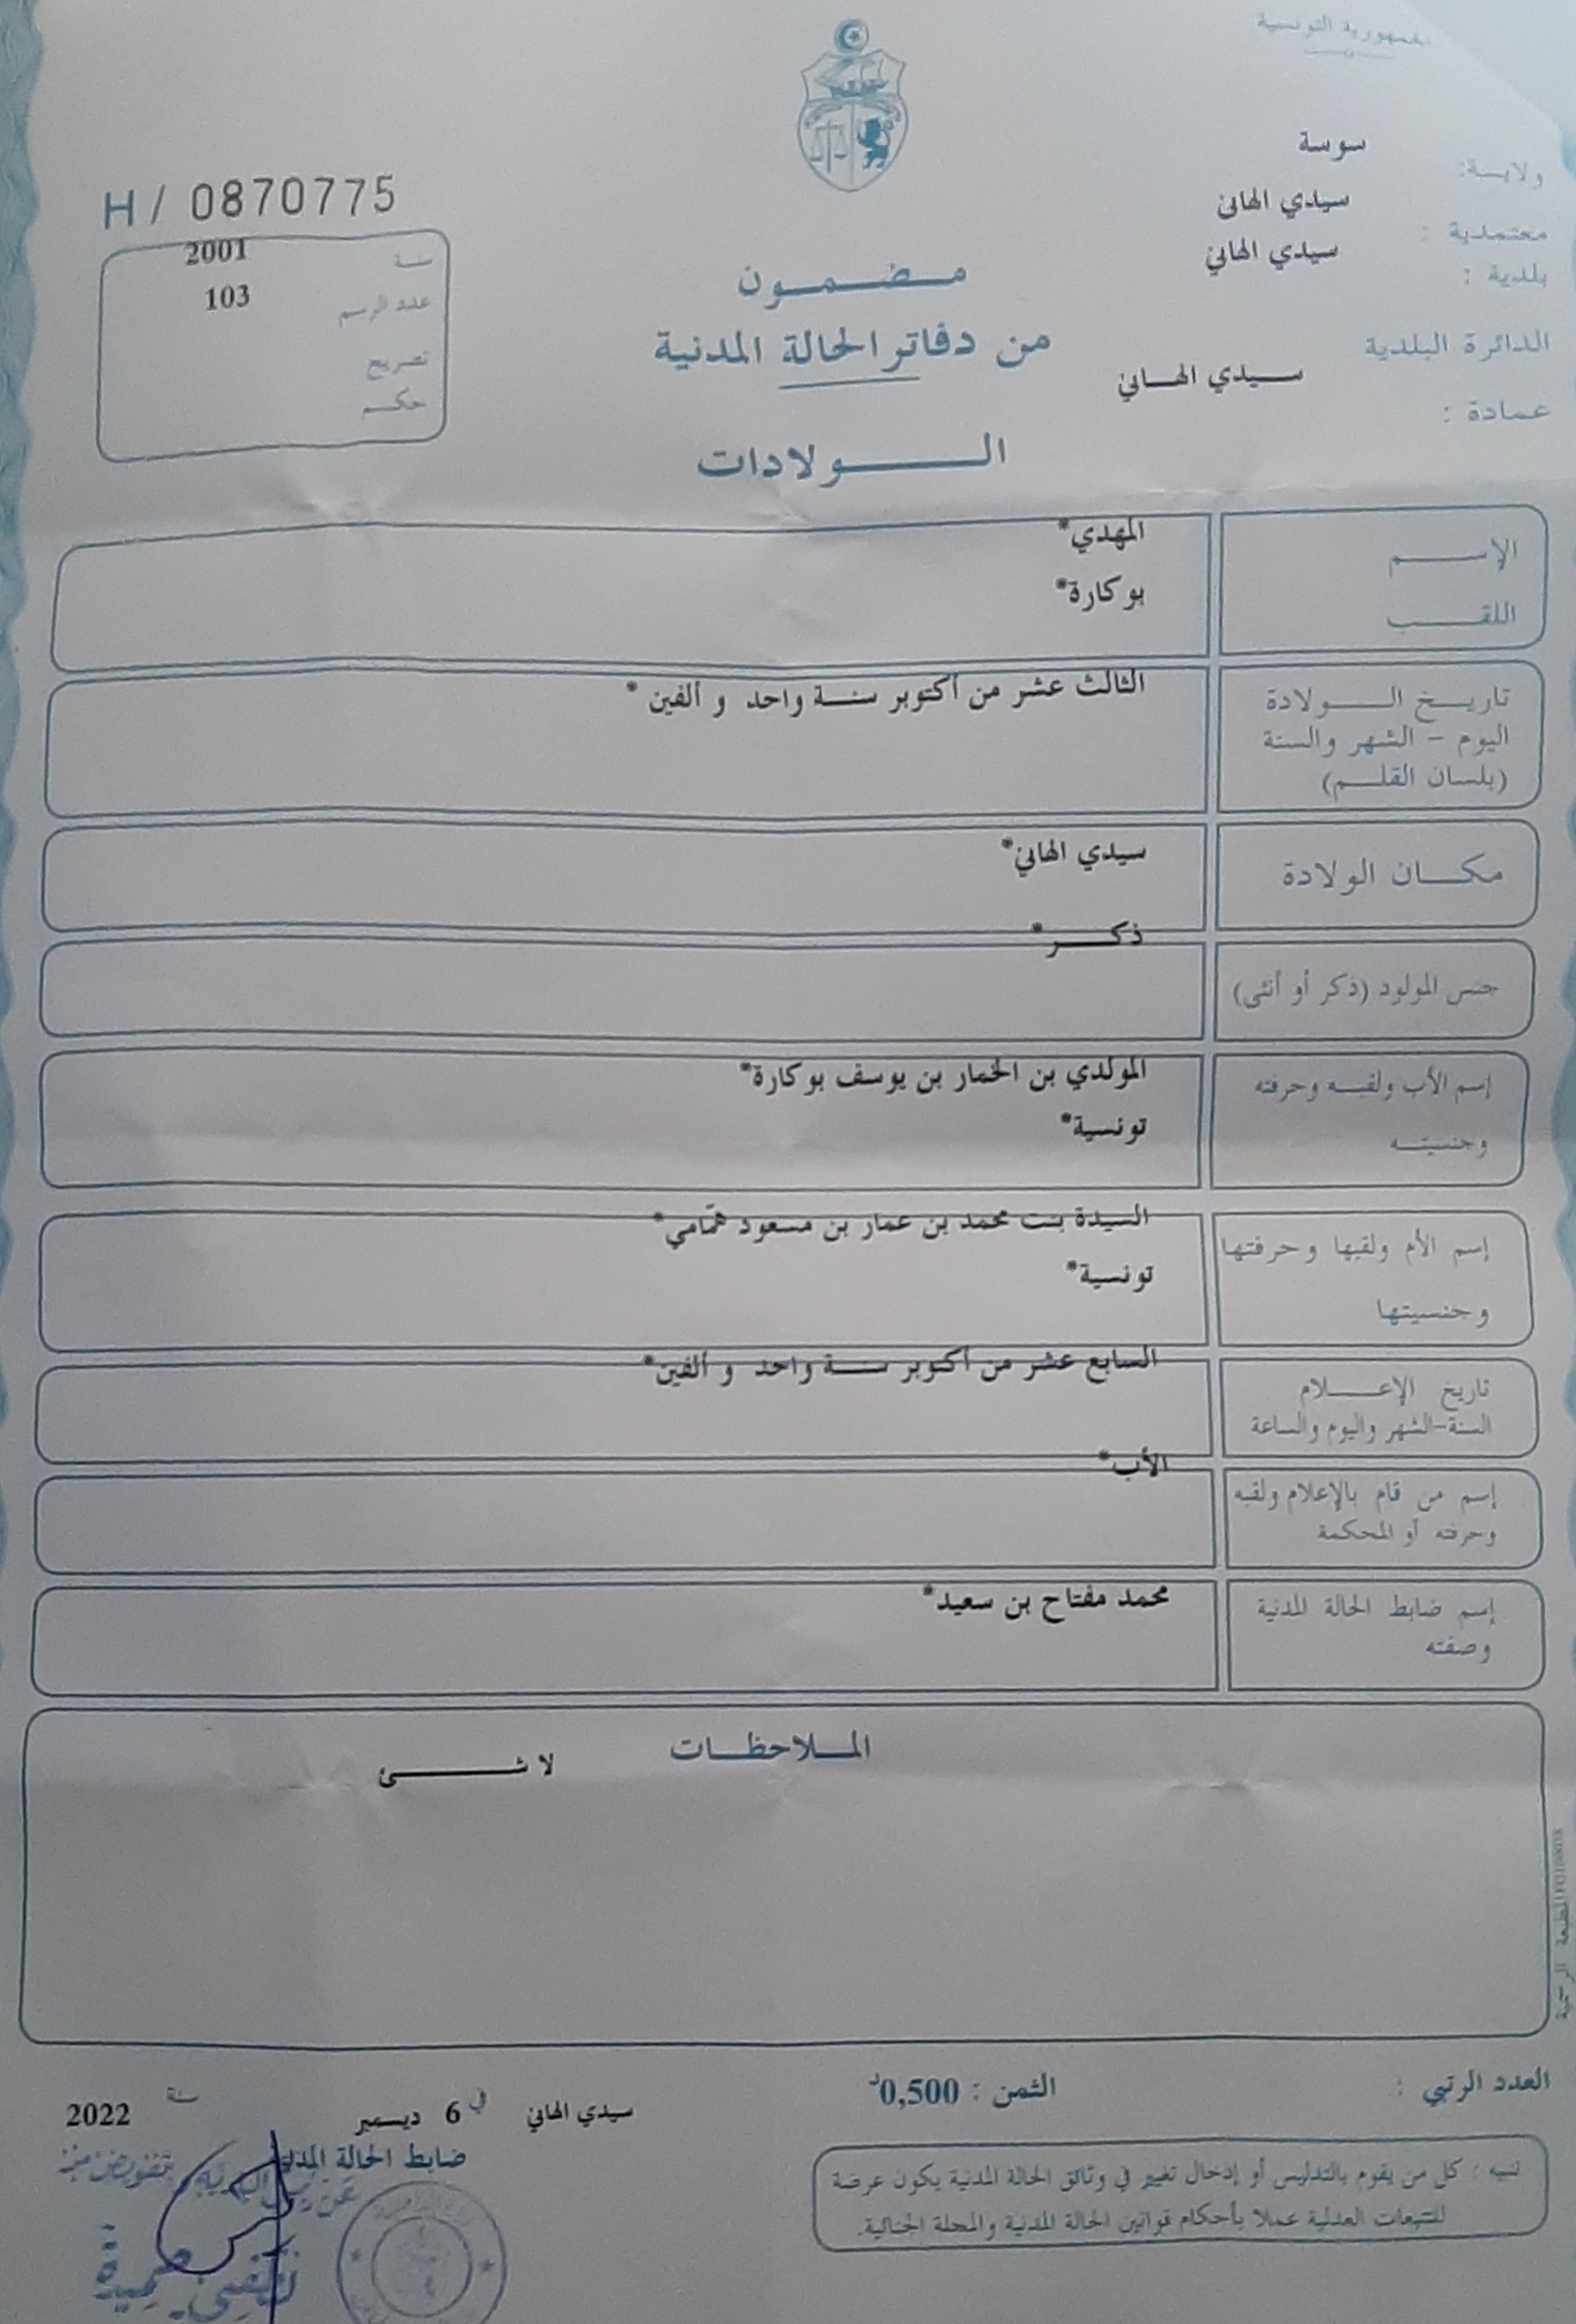 الجمهورية التونسية
ولايــة: سوسة
معتمدية : سيدي الهاني
بلدية : سيدي الهاني
الدائرة البلدية
سيدي الهاني
عمادة :
H/ 0870775
سنة 2001
عدد الرسم 103
تصريح
حكم
مضمون
من دفاتر الحالة المدنية
الولادات
الإسم المهدي*
اللقب بوكارة*
تاريخ الولادة الثالث عشر من أكتوبر سنة واحد و ألفين *
اليوم - الشهر والسنة
(بلسان القلم)
مكان الولادة سيدي الهاني*
جنس المولود (ذكر أو أنثى) ذكر*
إسم الأب ولقبه وحرفته المولدي بن الخمار بن يوسف بوكارة*
وجنسيته تونسية*
إسم الأم ولقبها وحرفتها السيدة بنت محمد بن عمار بن مسعود همّامي*
وجنسيتها تونسية*
تاريخ الإعلام السابع عشر من أكتوبر سنة واحد و ألفين*
السنة-الشهر واليوم والساعة
إسم من قام بالإعلام ولقبه الأب*
وحرفته أو المحكمة
إسم ضابط الحالة المدنية محمد مفتاح بن سعيد*
وصفته
الملاحظات
لا شئ
المطبعة الرسمية
العدد الرتبي :
الثمن : 0,500د
سيدي الهاني في 6 ديسمبر سنة 2022
ضابط الحالة المدنية
تنبيه : كل من يقوم بالتدليس أو إدخال تغيير في وثائق الحالة المدنية يكون عرضة
للتتبعات العدلية عملا بأحكام قوانين الحالة المدنية والمجلة الجنائية.